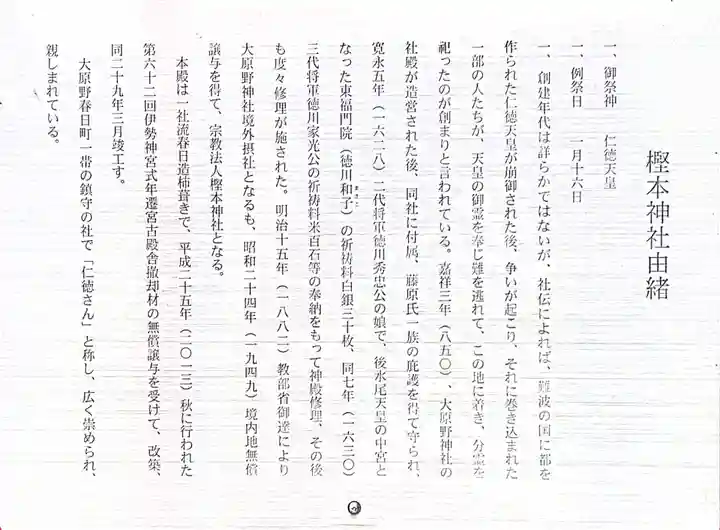 樫本神社由緒
一、御祭神　仁徳天皇
一、例祭日　一月十六日
一、創建年代は詳らかではないが、社伝によれば、難波の国に都を
作られた仁徳天皇が崩御された後、争いが起こり、それに巻き込まれた
一部の人たちが、天皇の御霊を奉じ難を逃れて、この地に着き、分霊を
祀ったのが創まりと言われている。嘉祥三年（八五〇）、大原野神社の
社殿が造営された後、同社に付属、藤原氏一族の庇護を得て守られ、
寛永五年（一六二八）二代将軍徳川秀忠公の娘で、後水尾天皇の中宮と
なった東福門院（徳川和子）の祈祷料白銀三十枚、同七年（一六三〇）
三代将軍徳川家光公の祈祷料米百石等の奉納をもって神殿修理、その後
も度々修理が施された。明治十五年（一八八二）教部省御達により
大原野神社境外摂社となるも、昭和二十四年（一九四九）境内地無償
譲与を得て、宗教法人樫本神社となる。
本殿は一社流春日造柿葺きで、平成二十五年（二〇一三）秋に行われた
第六十二回伊勢神宮式年遷宮古殿舎撤却材の無償譲与を受けて、改築、
同二十九年三月竣工す。
大原野春日町一帯の鎮守の社で「仁徳さん」と称し、広く崇められ、
親しまれている。